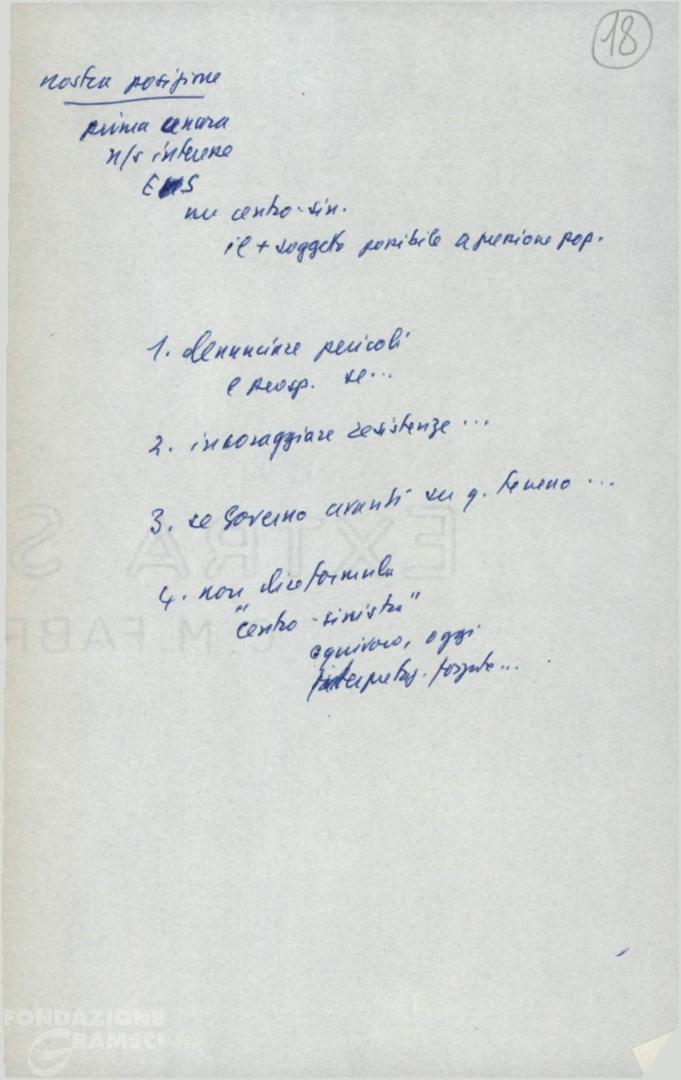 18
nostra posizione
prima
n/s interne
nu centro-sin.
il + soggetto possibile a pressione pop.
1. denunciare pericoli
e prosp. se...
2. incoraggiare resistenze ...
3. se Governo avanti su q. terreno ...
4. non dire formula
"centro-sinistra"
equivoco, oggi
interpretaz. forzate...
EXTRA S
. M. FABR
FONDAZIONE
GRAMSCI